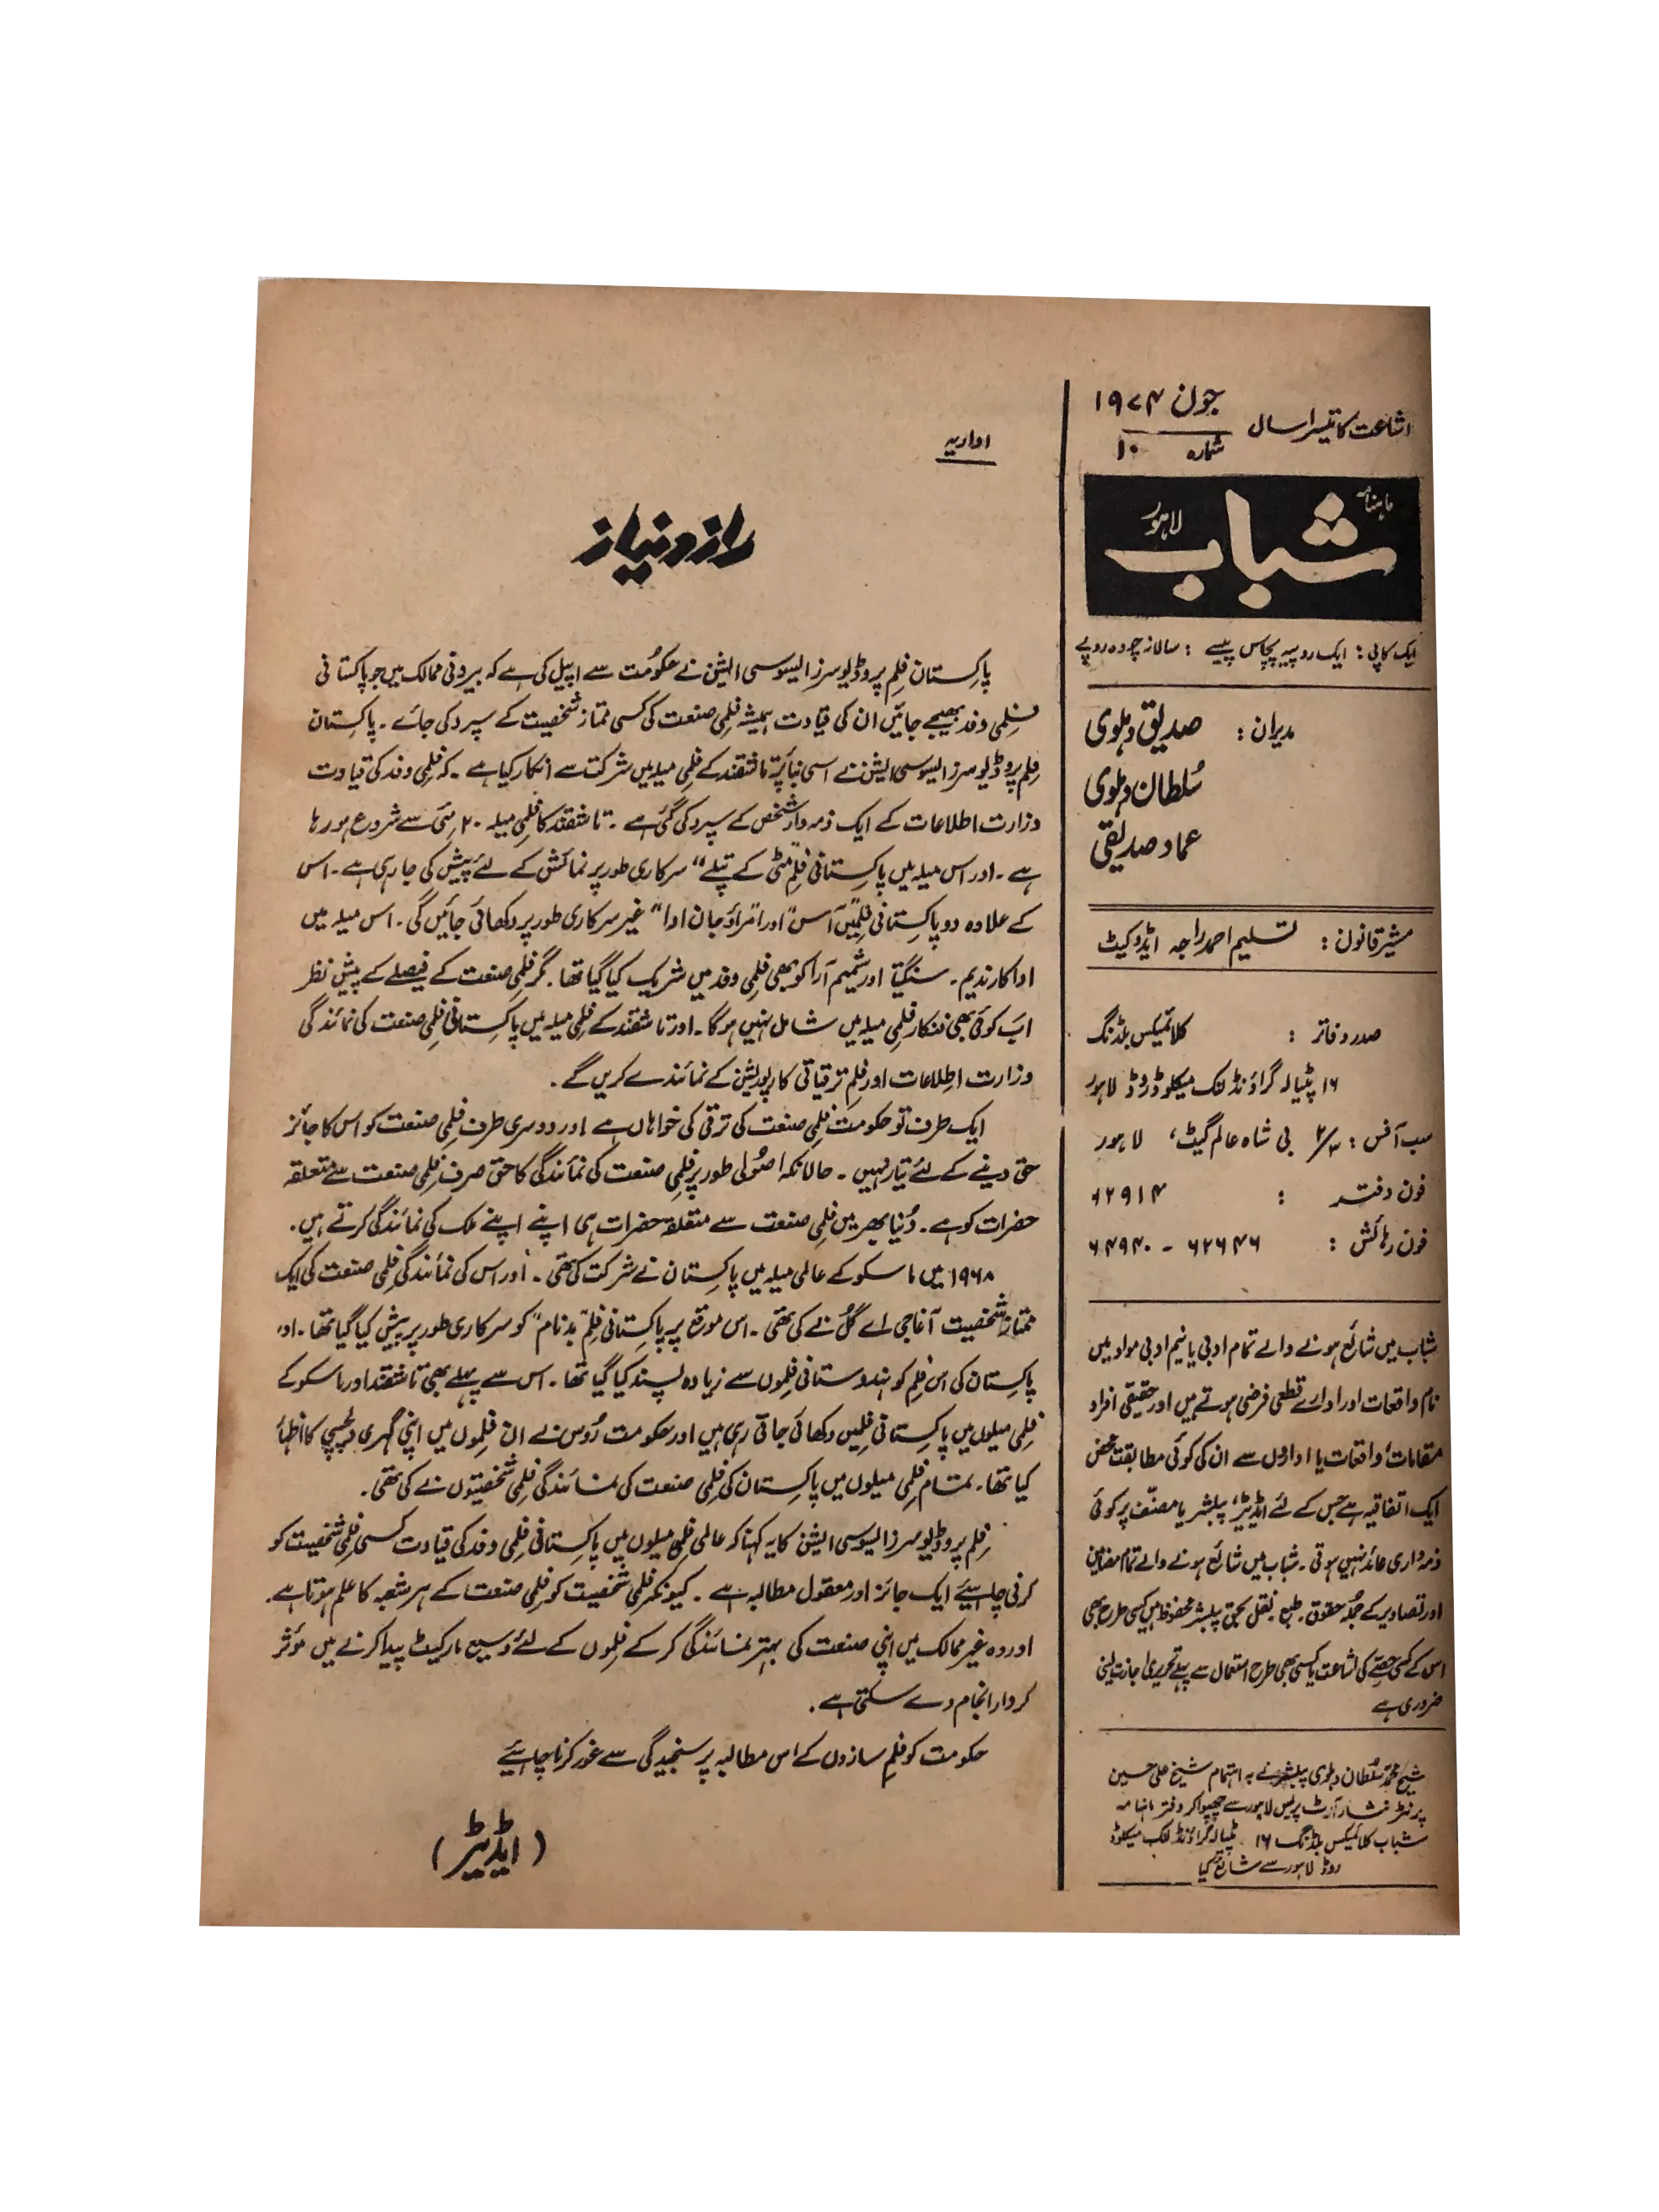 اشاعت کا تیسرا سال
جون ۱۹۷۴
شمارہ ۱۰
ماہنامہ
شباب
لاہور
ایک کاپی : ایک روپیہ پچاس پیسے : سالانہ چودہ روپے
مدیران : صدیق دہلوی
سُلطان دہلوی
عماد صدیقی
مشیر قانون : تسلیم احمد راجہ ایڈوکیٹ
صدر دفاتر : کلائمیکس بلڈنگ
۱۶ پٹیالہ گراؤنڈ لنک میکلوڈ روڈ لاہور
سب آفس : بی شاہ عالم گیٹ، لاہور
فون دفتر : ۶۲۹۱۴
فون رہائش : ۶۲۶۴۶ - ۶۴۹۴۰
شباب میں شائع ہونے والے تمام ادبی یا نیم ادبی مواد میں
نام واقعات اور ادارے قطعی فرضی ہوتے ہیں اور حقیقی افراد
مقامات، واقعات یا اداروں سے ان کی کوئی مطابقت محض
ایک اتفاقیہ ہے جس کے لئے ایڈیٹر، پبلشر یا مصنّف پر کوئی
ذمہ داری عائد نہیں ہوتی۔ شباب میں شائع ہونے والے تمام مضامین
اور تصاویر کے جملہ حقوق۔ طبع نقل بحق پبلشر محفوظ ہیں کسی طرح بھی
اس کے کسی حصّے کی اشاعت یا کسی بھی طرح استعمال سے پہلے تحریری اجازت لینی
ضروری ہے
شیخ محمد سُلطان دہلوی پبلشر نے بہ اہتمام شیخ علی حسین
پرنٹر نثار آرٹ پریس لاہور سے چھپوا کر دفتر ماہنامہ
شباب کلائمیکس بلڈنگ ۱۶ پٹیالہ گراؤنڈ لنک میکلوڈ
روڈ لاہور سے شائع کیا
اداریہ
راز و نیاز
پاکستان فلم پروڈیوسرز ایسوسی ایشن نے حکومت سے اپیل کی ہے کہ بیرونی ممالک میں جو پاکستانی
فلمی وفد بھیجے جائیں ان کی قیادت ہمیشہ فلمی صنعت کی کسی ممتاز شخصیت کے سپرد کی جائے۔ پاکستان
فلم پروڈیوسرز ایسوسی ایشن نے اسی بنا پر تاشقند کے فلمی میلہ میں شرکت سے انکار کیا ہے۔ کہ فلمی وفد کی قیادت
وزارت اطلاعات کے ایک ذمہ دار شخص کے سپرد کی گئی ہے۔ تاشقند کا فلمی میلہ ۲۰ مئی سے شروع ہو رہا
ہے۔ اور اس میلہ میں پاکستانی فلم "مٹی کے پتلے" سرکاری طور پر نمائش کے لئے پیش کی جا رہی ہے۔ اس
کے علاوہ دو پاکستانی فلمیں "آس" اور "امراؤ جان ادا" غیر سرکاری طور پر دکھائی جائیں گی۔ اس میلہ میں
اداکار ندیم۔ سنگیتا اور شمیم آرا کو بھی فلمی وفد میں شریک کیا گیا تھا۔ مگر فلمی صنعت کے فیصلے کے پیش نظر
اب کوئی بھی فنکار فلمی میلہ میں شامل نہیں ہو گا۔ اور تاشقند کے فلمی میلہ میں پاکستانی فلمی صنعت کی نمائندگی
وزارت اطلاعات اور فلم ترقیاتی کارپوریشن کے نمائندے کریں گے۔
ایک طرف تو حکومت فلمی صنعت کی ترقی کی خواہاں ہے اور دوسری طرف فلمی صنعت کو اس کا جائز
حق دینے کے لئے تیار نہیں۔ حالانکہ اصولی طور پر فلمی صنعت کی نمائندگی کا حق صرف فلمی صنعت سے متعلقہ
حضرات کو ہے۔ دُنیا بھر میں فلمی صنعت سے متعلقہ حضرات ہی اپنے اپنے ملک کی نمائندگی کرتے ہیں۔
۱۹۶۸ میں ماسکو کے عالمی میلہ میں پاکستان نے شرکت کی تھی۔ اور اس کی نمائندگی فلمی صنعت کی ایک
ممتاز شخصیت آغا جی اے گُل نے کی تھی۔ اس موقع پر پاکستانی فلم "بدنام" کو سرکاری طور پر پیش کیا گیا تھا۔ اور
پاکستان کی اس فلم کو ہندوستانی فلموں سے زیادہ پسند کیا گیا تھا۔ اس سے پہلے بھی تاشقند اور ماسکو کے
فلمی میلوں میں پاکستانی فلمیں دکھائی جاتی رہی ہیں اور حکومت رُوس نے ان فلموں میں اپنی گہری دلچسپی کا اظہار
کیا تھا۔ تمام فلمی میلوں میں پاکستان کی فلمی صنعت کی نمائندگی فلمی شخصیتوں نے کی تھی۔
فلم پروڈیوسرز ایسوسی ایشن کا یہ کہنا کہ عالمی فلمی میلوں میں پاکستانی فلمی وفد کی قیادت کسی فلمی شخصیت کو
کرنی چاہیئے ایک جائز اور معقول مطالبہ ہے۔ کیونکہ فلمی شخصیت کو فلمی صنعت کے ہر شعبہ کا علم ہوتا ہے۔
اور وہ غیر ممالک میں اپنی صنعت کی بہتر نمائندگی کر کے فلموں کے لئے وسیع مارکیٹ پیدا کرنے میں مؤثر
کردار انجام دے سکتی ہے۔
حکومت کو فلم سازوں کے اس مطالبہ پر سنجیدگی سے غور کرنا چاہیئے
(ایڈیٹر)